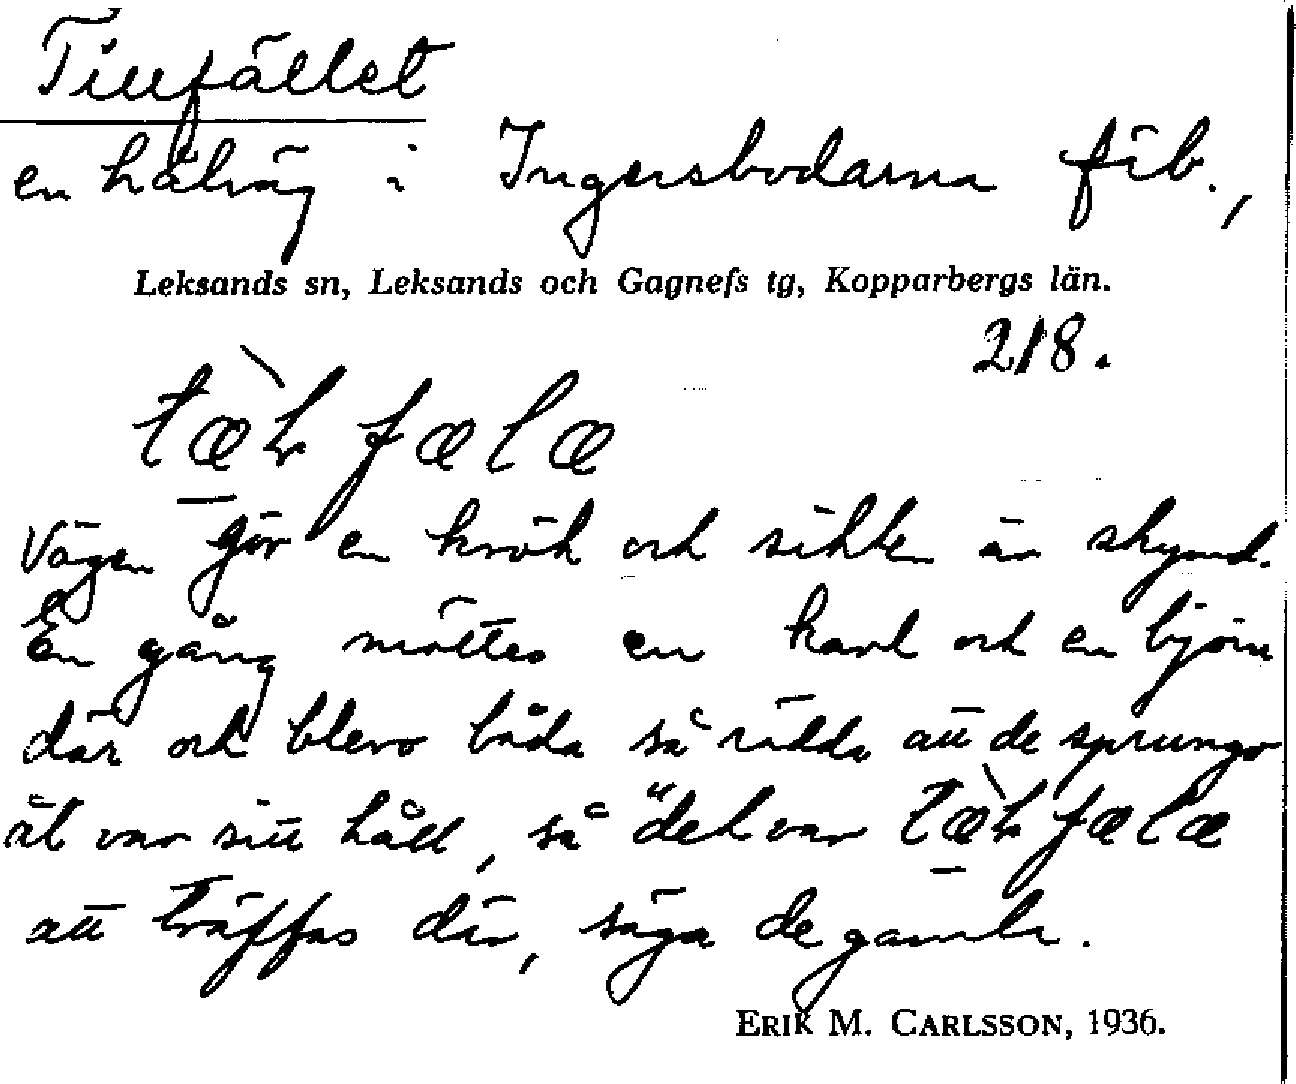 Tillfället
en hålväg i Ingersbodarna fäb.,
Leksands sn, Leksands och Gagnefs tg, Kopparbergs län.
218.
tæ̀h fælæ
Vägen gör en krök och sikten är skymd.
En gång möttes en karl och en björn
där och blevo båda så rädda att de sprungo
åt var sitt håll, så "det var tæ̀h fælæ
att träffas där, säga de gamla.
ERIK M. CARLSSON, 1936.